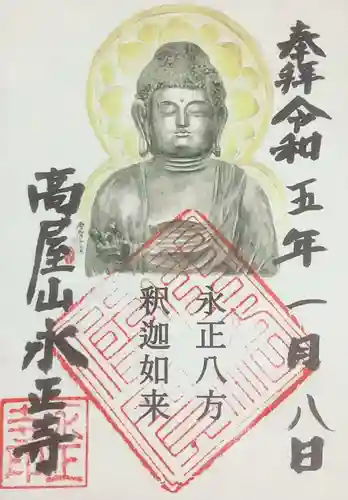 奉拝令和五年一月八日
永正八方
釈迦如来
高屋山永正寺
永正
寺印